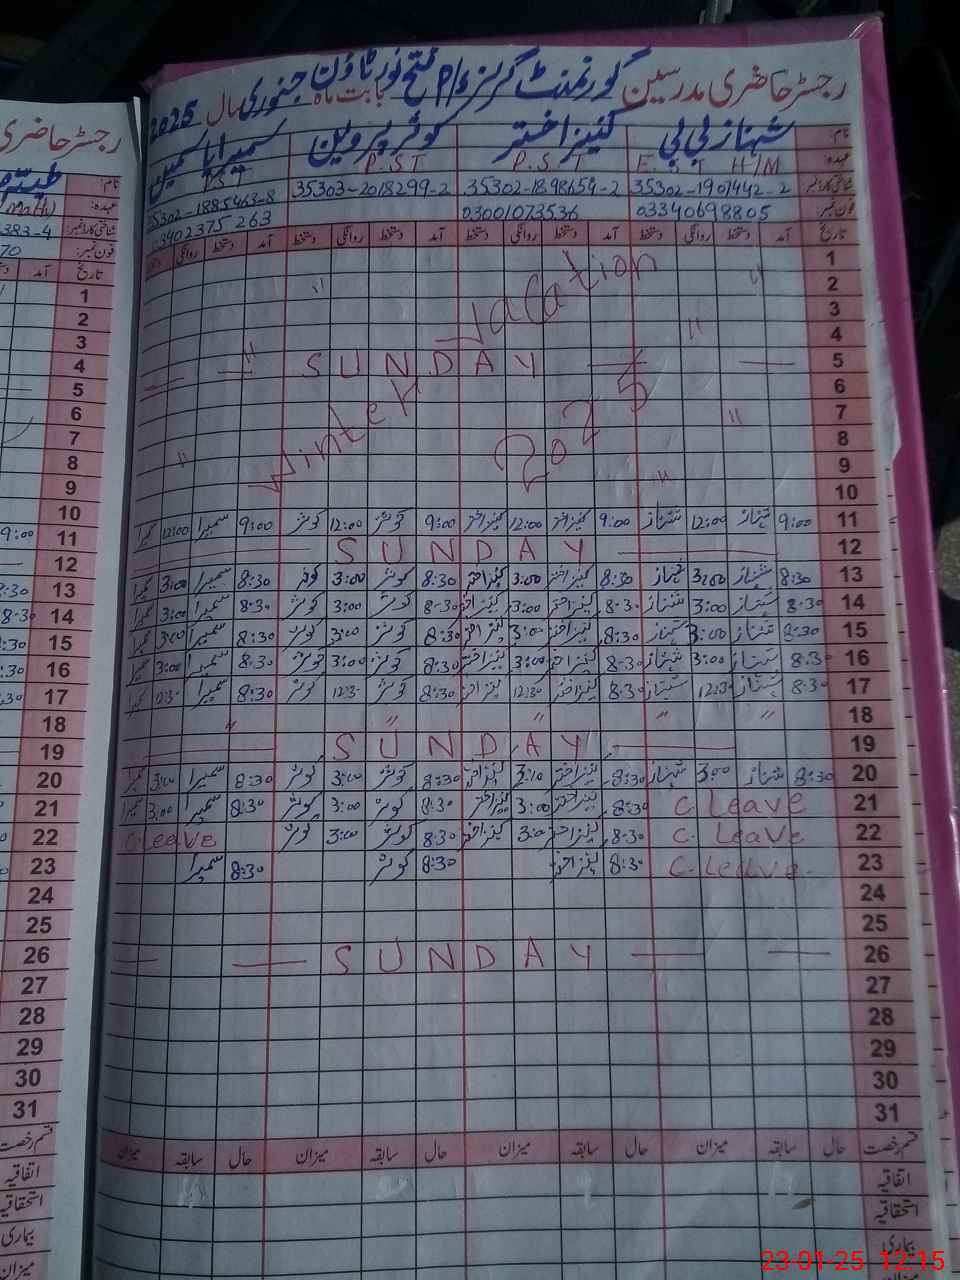 رجسٹر حاضری مدرسین گورنمنٹ گرلز e/P فتح نور ٹاؤن بابت ماہ جنوری سال 2025
نام: شہناز بی بی کنیز اختر کوثر پروین سمیرا یاسمین
عہدہ: E.S.T H/M P.S.T P.S.T PST
شناختی کارڈ نمبر: 35302-1901442-2 35302-1898654-2 35303-2018299-2 35302-1885463-8
فون نمبر: 03340698805 03001073536 03402375263
تاریخ آمد دستخط روانگی دستخط آمد دستخط روانگی دستخط آمد دستخط روانگی دستخط آمد دستخط روانگی
1 Vacation
2 " "
3
4 " "
5 SUNDAY
6 Winter 2025
7 "
8
9 " "
10
11 9:00 شہناز 12:00 شہناز 9:00 کنیز اختر 12:00 کنیز اختر 9:00 کوثر 12:00 کوثر 9:00 سمیرا 12:00 سمیرا
12 SUNDAY
13 8:30 شہناز 3:00 شہناز 8:30 کنیز اختر 3:00 کنیز اختر 8:30 کوثر 3:00 کوثر 8:30 سمیرا 3:00 سمیرا
14 8:30 شہناز 3:00 شہناز 8:30 کنیز اختر 3:00 کنیز اختر 8:30 کوثر 3:00 کوثر 8:30 سمیرا 3:00 سمیرا
15 8:30 شہناز 3:00 شہناز 8:30 کنیز اختر 3:00 کنیز اختر 8:30 کوثر 3:00 کوثر 8:30 سمیرا 3:00 سمیرا
16 8:30 شہناز 3:00 شہناز 8:30 کنیز اختر 3:00 کنیز اختر 8:30 کوثر 3:00 کوثر 8:30 سمیرا 3:00 سمیرا
17 8:30 شہناز 12:30 شہناز 8:30 کنیز اختر 12:30 کنیز اختر 8:30 کوثر 12:30 کوثر 8:30 سمیرا 12:30 سمیرا
18 " " " " "
19 SUNDAY
20 8:30 شہناز 3:00 شہناز 8:30 کنیز اختر 3:00 کنیز اختر 8:30 کوثر 3:00 کوثر 8:30 سمیرا 3:00 سمیرا
21 C. Leave 8:30 کنیز اختر 3:00 کنیز اختر 8:30 کوثر 3:00 کوثر 8:30 سمیرا 3:00 سمیرا
22 C. Leave 8:30 کنیز اختر 3:00 کنیز اختر 8:30 کوثر 3:00 کوثر C.leave
23 C. Leave 8:30 کنیز اختر 8:30 کوثر 8:30 سمیرا
24
25
26 SUNDAY
27
28
29
30
31
قسم رخصت حال سابقہ میزان حال سابقہ میزان حال سابقہ میزان حال سابقہ میزان
اتفاقیہ
استحقاقیہ
بیماری
رجسٹر حاضری
نام:
عہدہ:
شناختی کارڈ نمبر: 383-4
فون نمبر: 70
تاریخ آمد
1
2
3
4
5
6
7
8
9
10
11 9:00
12
13 8:30
14 8:30
15 :30
16 :30
17 :30
18
19
20
21
22
23
24
25
26
27
28
29
30
31
قسم رخصت
اتفاقیہ
استحقاقیہ
بیماری
میزان
23-01-25 12:15